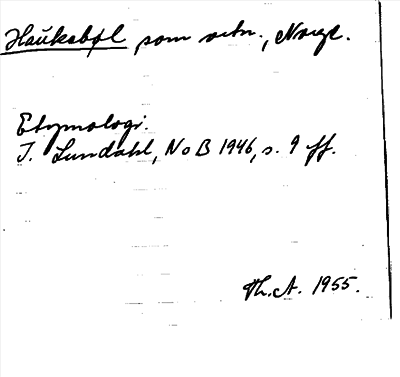 Haukabøl som ortn., Norge.
Etymologi.
I. Lundahl, NoB 1946, s. 9 ff.
Th.A. 1955.